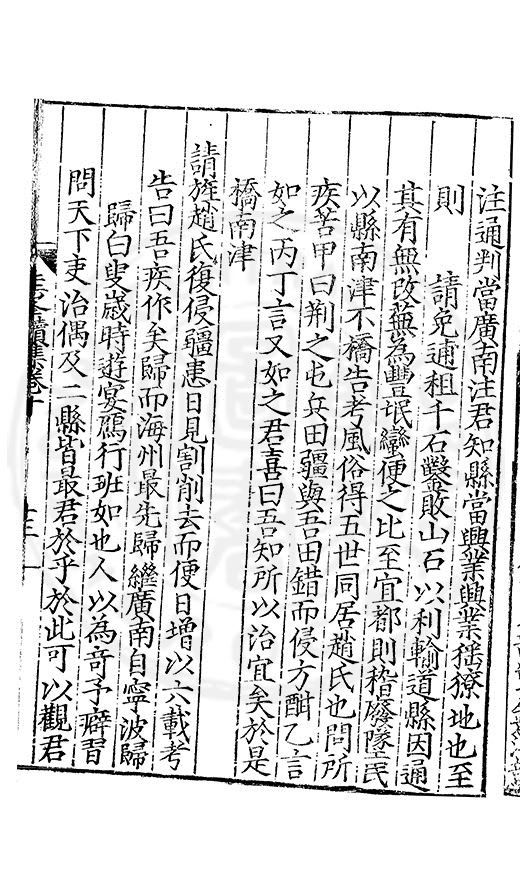 注通判當廣南注君知縣當興業興業猺獠地也至
則　　請免逋租千石鑿敗山石以利輸道縣因通
其有無改蕪為豐氓蠻便之比至宜都則稽廢墜民
以縣南津不橋告考風俗得五世同居趙氏也問所
疾苦甲曰荆之屯兵田疆與吾田錯而侵方酣乙言
如之丙丁言又如之君喜曰吾知所以治宜矣於是
橋南津
請旌趙氏復侵疆患日見割削去而便日增以六載考
告曰吾疾作矣歸而海州最先歸繼廣南自寧波歸
歸白叟歲時遊宴鴈行班如也人以為奇予癖習
問天下吏治偶及二縣皆最君於乎於此可以觀君